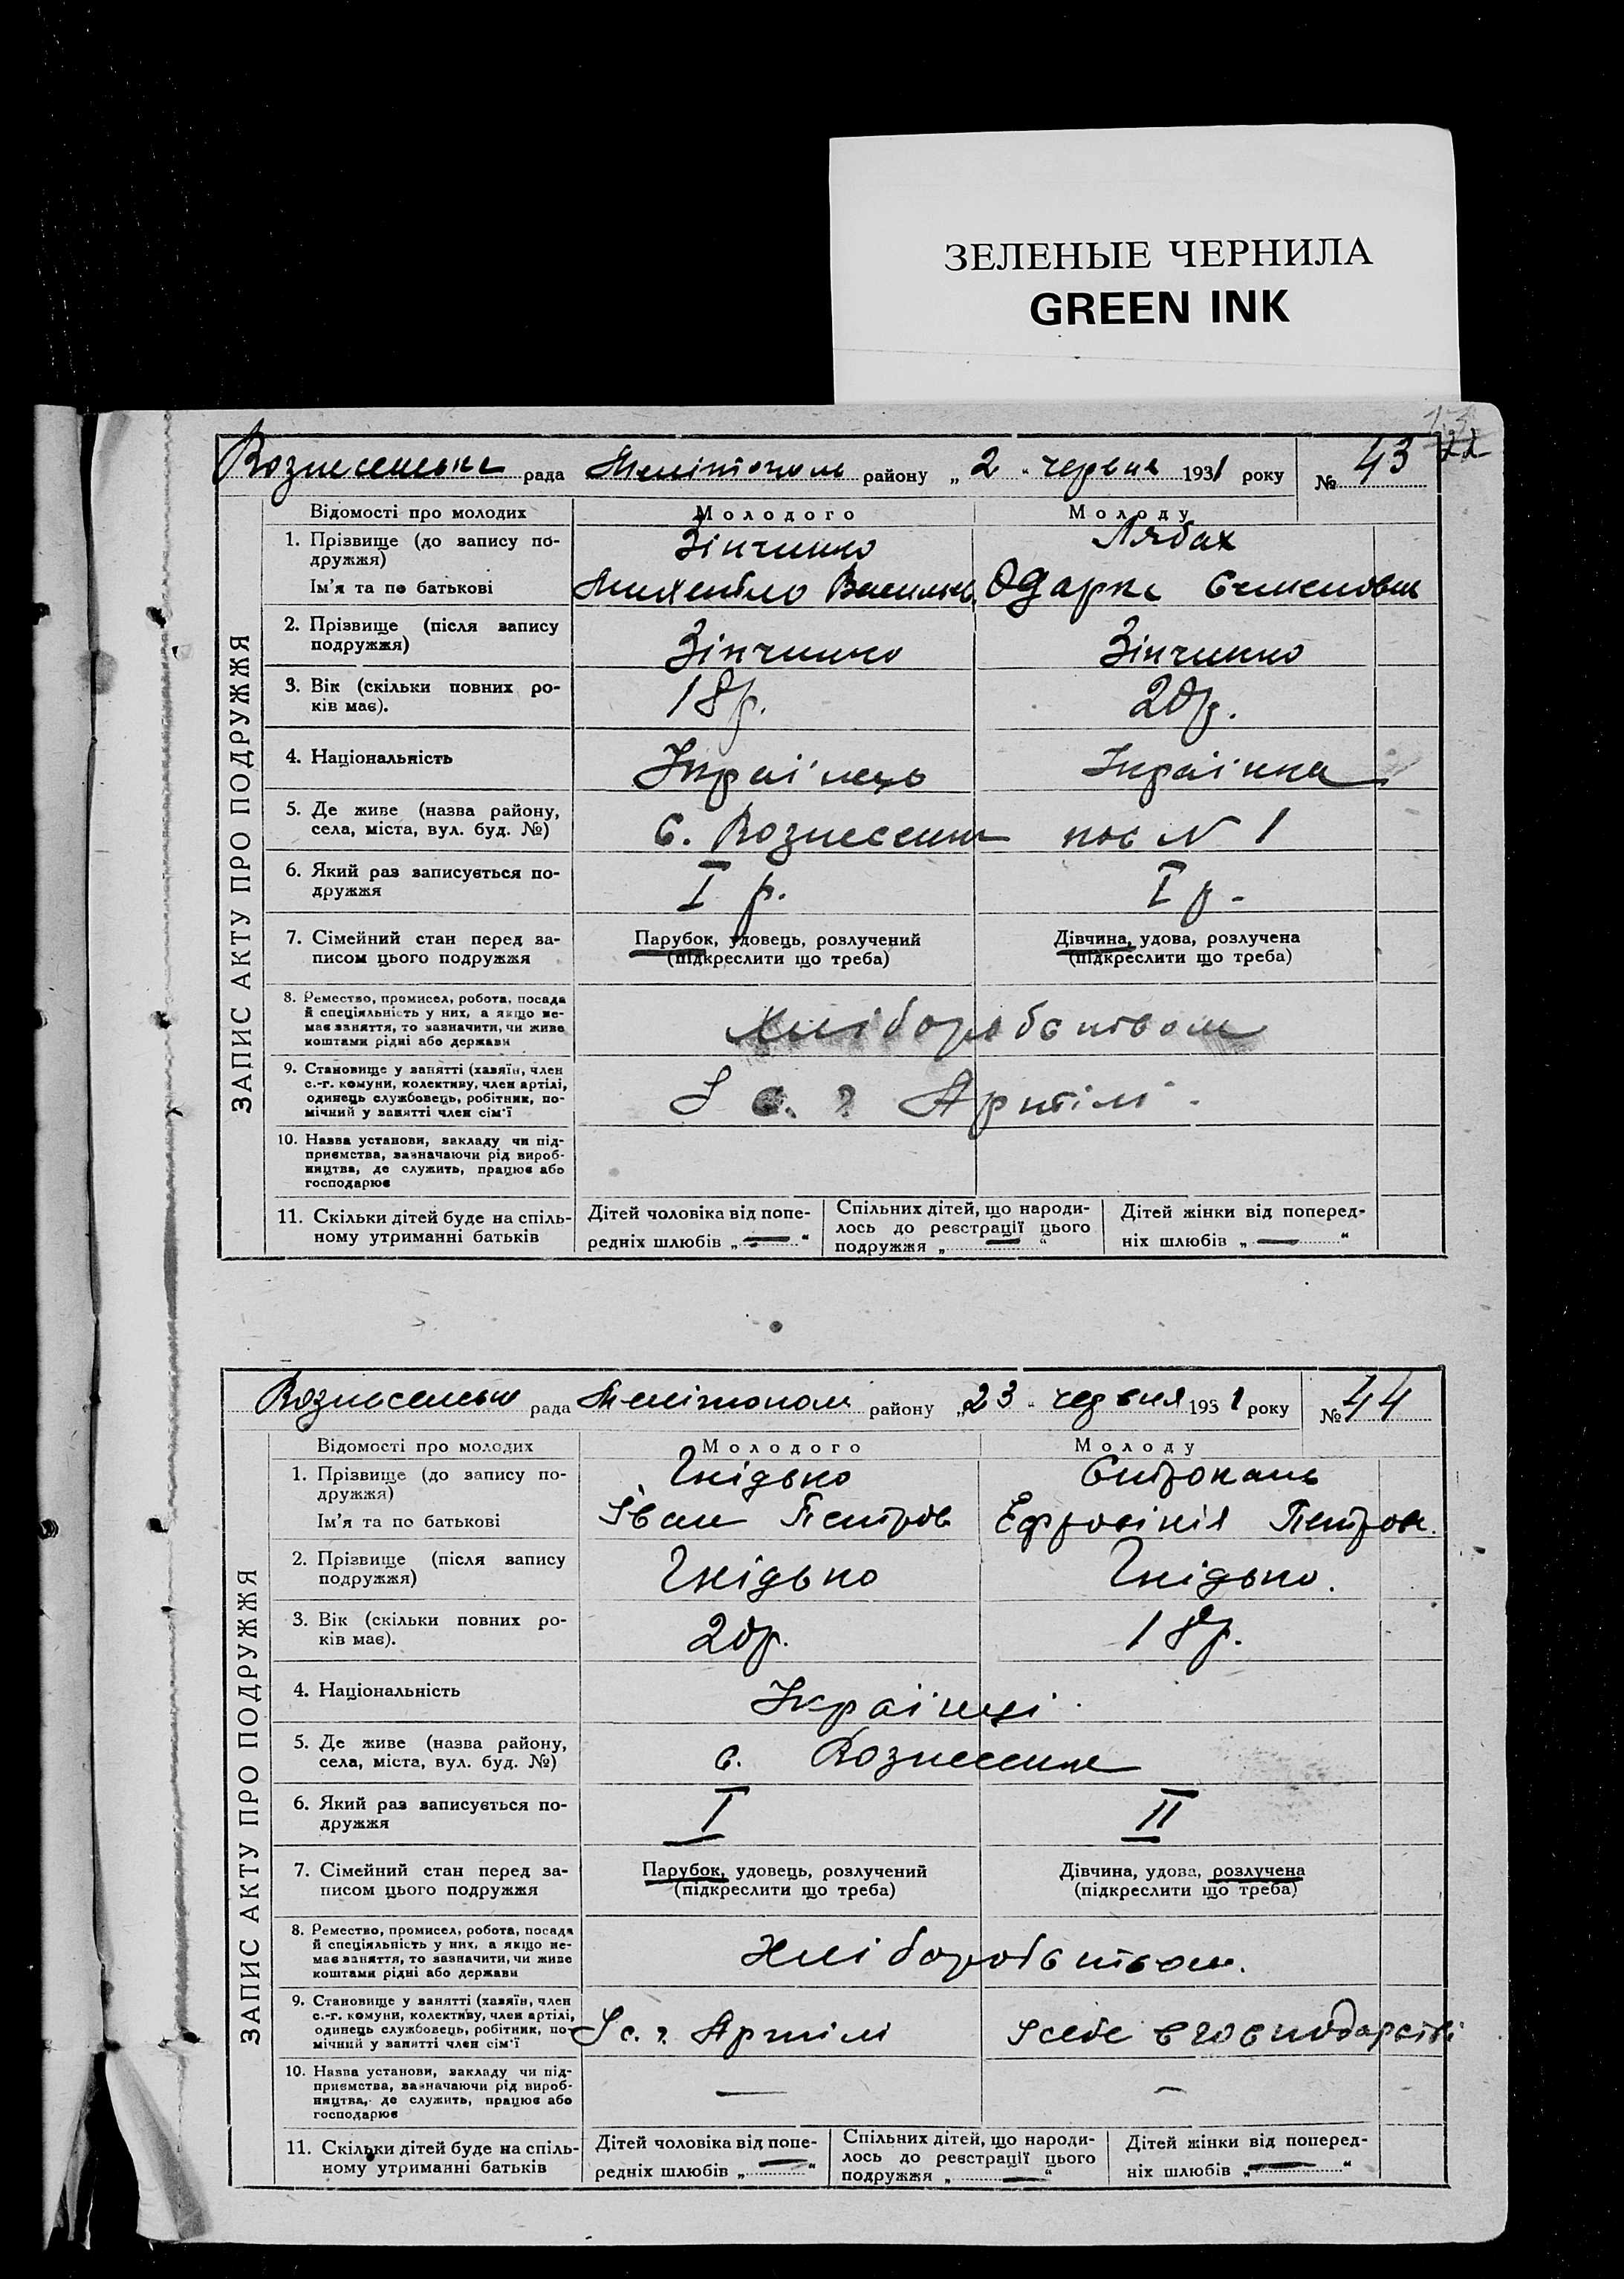 ЗЕЛЕНЫЕ ЧЕРНИЛА
GREEN INK
22
Вознесенська рада Мелітополь району „2“ червня 1931 року № 43
ЗАПИС АКТУ ПРО ПОДРУЖЖЯ
Відомості про молодих Молодого Молоду
1. Прізвище (до запису по-
дружжя) Зінченко Лябах
Ім'я та по батькові Михайло Василів. Одарка Семеновна
2. Прізвище (після запису
подружжя) Зінченко Зінченко
3. Вік (скільки повних ро-
ків має). 18р. 20р.
4. Національність Українець Українка
5. Де живе (назва району,
села, міста, вул. буд. №) с. Вознесенка пос N 1
6. Який раз записується по-
дружжя I р. I р.
7. Сімейний стан перед за-
писом цього подружжя
Парубок, удовець, розлучений
(підкреслити що треба)
Дівчина, удова, розлучена
(підкреслити що треба)
8. Ремество, промисел, робота, посада
й спеціяльність у них, а якщо не-
має заняття, то зазначити, чи живе
коштами рідні або держави
Хліборобством
9. Становище у занятті (хазяїн, член
с.-г. комуни, колективу, член артілі,
одинець службовець, робітник, по-
мічний у занятті член сім'ї
У с. г Артілі
10. Назва установи, закладу чи під-
приємства, зазначаючи рід вироб-
ництва, де служить, працює або
господарює
11. Скільки дітей буде на спіль-
ному утриманні батьків
Дітей чоловіка від попе-
редніх шлюбів „—“
Спільних дітей, що народи-
лось до реєстрації цього
подружжя „—“
Дітей жінки від поперед-
ніх шлюбів „—“
Вознесенська рада Мелітополь району „23“ червня 1931 року № 44
ЗАПИС АКТУ ПРО ПОДРУЖЖЯ
Відомості про молодих Молодого Молоду
1. Прізвище (до запису по-
дружжя) Гнідько
Ім'я та по батькові Іван Петров Ефросінія Петровн.
2. Прізвище (після запису
подружжя) Гнідько Гнідько.
3. Вік (скільки повних ро-
ків має). 20р. 18р.
4. Національність Українці
5. Де живе (назва району,
села, міста, вул. буд. №) с. Вознесенка
6. Який раз записується по-
дружжя I II
7. Сімейний стан перед за-
писом цього подружжя
Парубок, удовець, розлучений
(підкреслити що треба)
Дівчина, удова, розлучена
(підкреслити що треба)
8. Ремество, промисел, робота, посада
й спеціяльність у них, а якщо не-
має заняття, то зазначити, чи живе
коштами рідні або держави
Хліборобством.
9. Становище у занятті (хазяїн, член
с.-г. комуни, колективу, член артілі,
одинець службовець, робітник, по-
мічний у занятті член сім'ї
У с. г. Артілі у себе в господарстві
10. Назва установи, закладу чи під-
приємства, зазначаючи рід вироб-
ництва, де служить, працює або
господарює — —
11. Скільки дітей буде на спіль-
ному утриманні батьків
Дітей чоловіка від попе-
редніх шлюбів „—“
Спільних дітей, що народи-
лось до реєстрації цього
подружжя „—“
Дітей жінки від поперед-
ніх шлюбів „—“